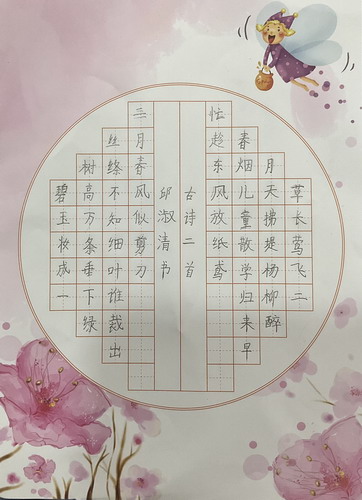 草长莺飞二
月天拂堤杨柳醉
春烟儿童散学归来早
忙趁东风放纸鸢
古诗二首
邱淑清书
碧玉妆成一
树高万条垂下绿
丝绦不知细叶谁裁出
三月春风似剪刀